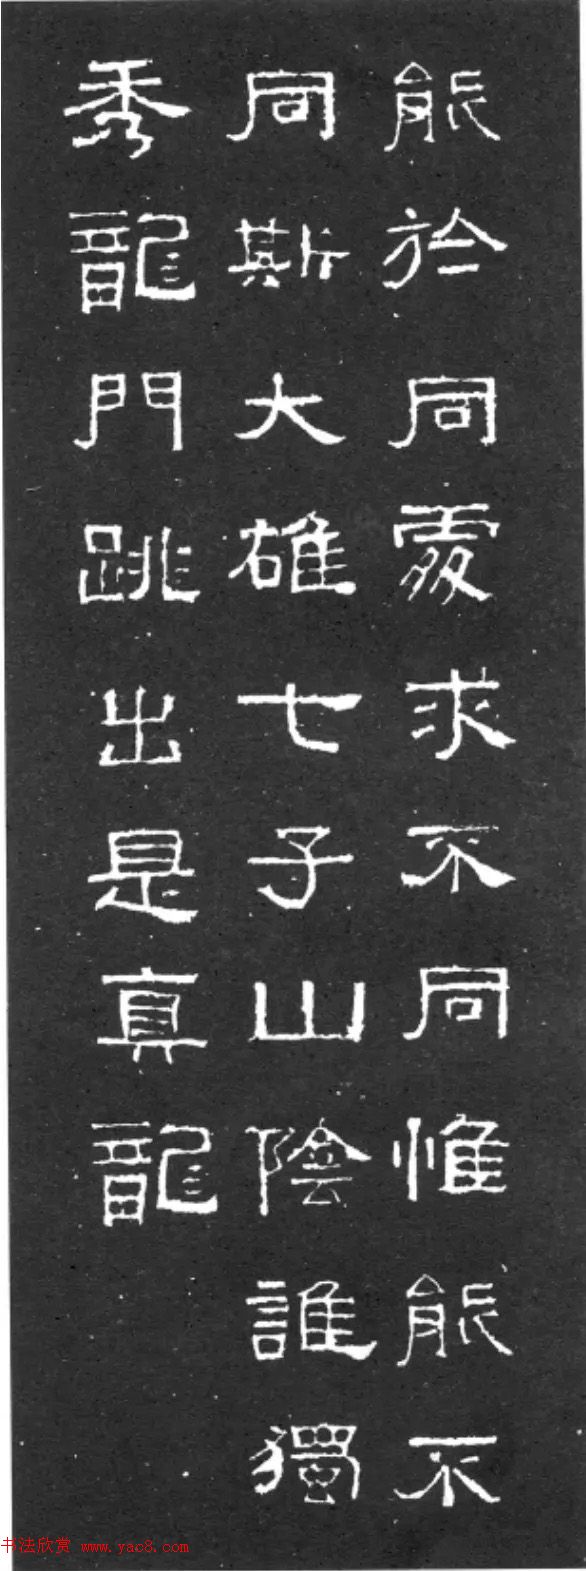 能於同處求不同惟能不
同斯大雄七子山陰誰獨
秀龍門跳出是真龍
书法欣赏 www.yac8.com